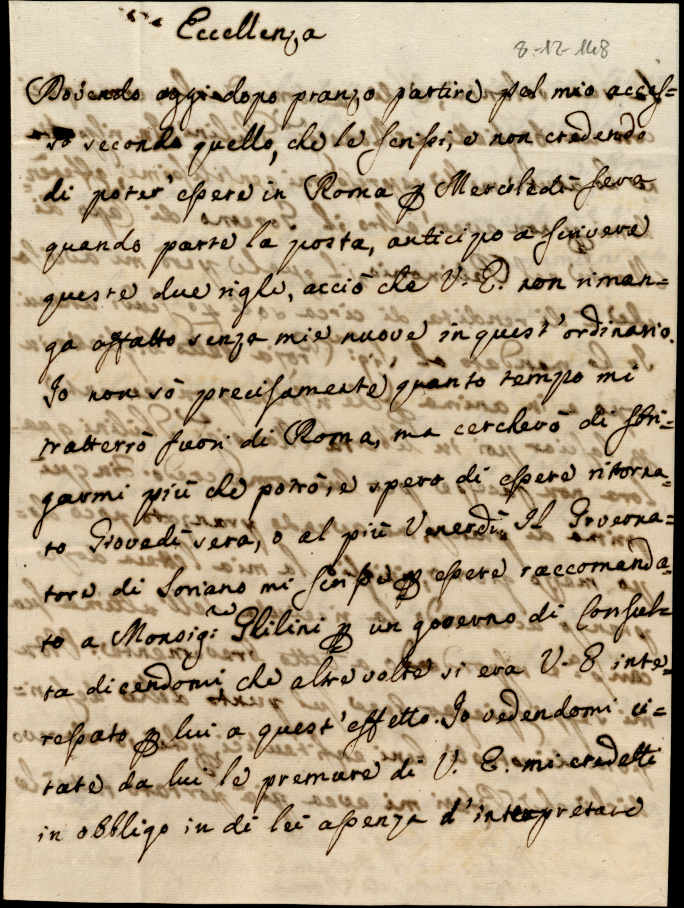 Eccellenza
8-12-148
Dovendo oggi dopo pranzo partire pel mio acces=
so secondo quello, che le scrissi, e non credendo
di poter' essere in Roma p Mercoledì sera
quando parte la posta, anticipo a scrivere
queste due righe, acciò che V. E. non riman=
ga affatto senza mie nuove in quest' ordinario.
Io non sò precisamente quanto tempo mi
tratterrò fuori di Roma, ma cercherò di sbri=
garmi più che potrò, e spero di essere ritorna=
to Giovedì sera, o al più Venerdì. Il Governa=
tore di Soriano mi scrisse p essere raccomanda=
to a Monsig.r Ghilini p un governo di Consul=
ta dicendomi che altre volte si era V. E inte=
ressato p lui a quest' effetto. Io vedendomi ci=
tate da lui le premure di V. E. mi credetti
in obbligo in di lei assenza d' interpretare